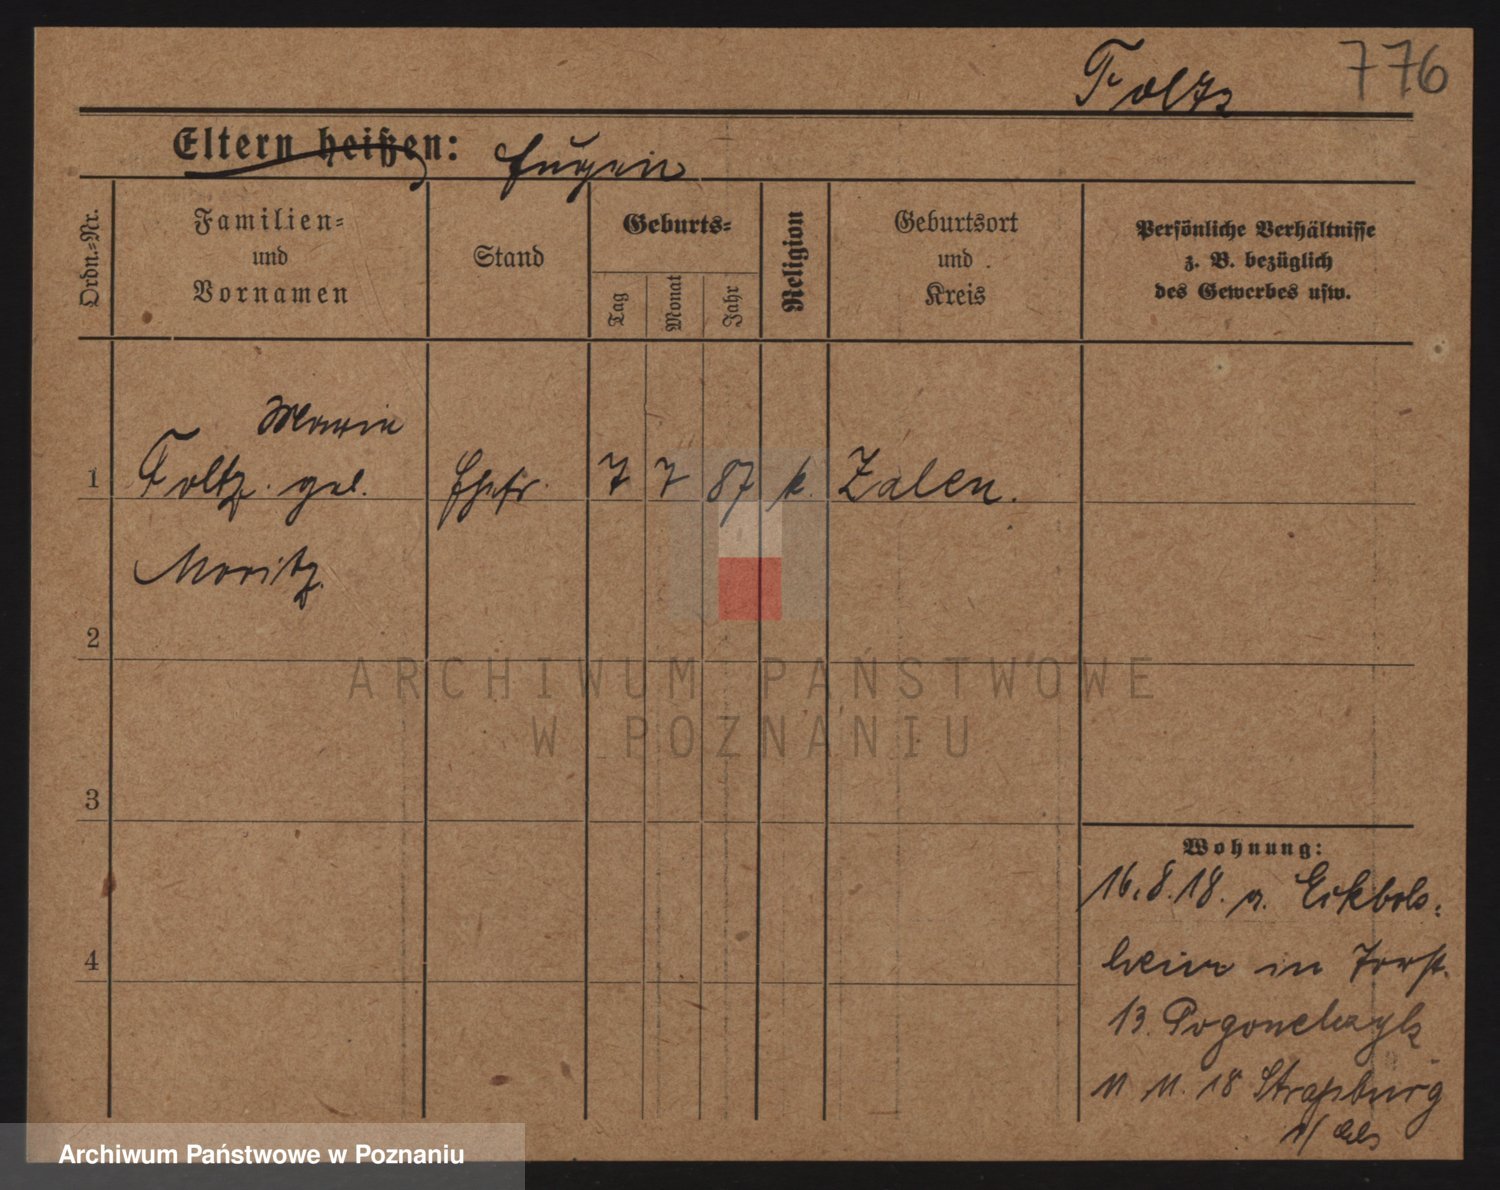 Foltz 776
Eltern heißen: Eugen
Ordn.-Nr.
Familien-
und
Vornamen
Stand
Geburts-
Tag
Monat
Jahr
Religion
Geburtsort
und
Kreis
Persönliche Verhältnisse
z. B. bezüglich
des Gewerbes usw.
Marie
1 Foltz geb. Ehefr. 7 7 87 k. Zalen.
Moritz
2
3
4
Wohnung:
16.8.18. v. Eckbols-
heim in Forst.
13. Pogonczyk
11 11. 18 Straßburg
i/ Els
ARCHIWUM PAŃSTWOWE
W POZNANIU
Archiwum Państwowe w Poznaniu